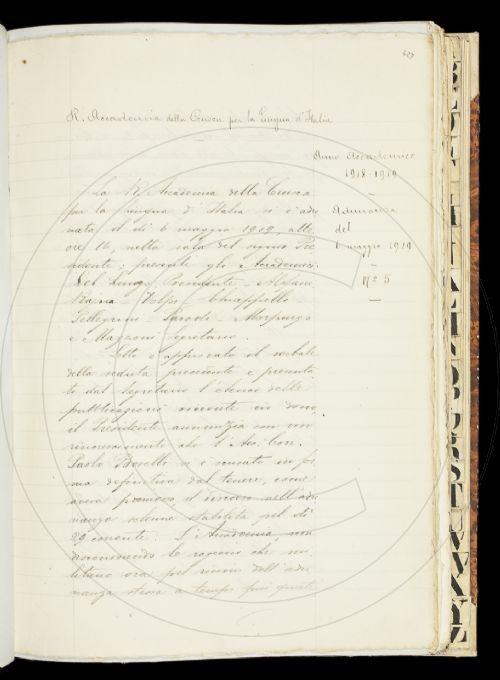 R. Accademia della Crusca per la Lingua d'Italia
Anno Accademico
1918-1919
Adunanza
del
6 maggio 1919
Nº 5
La R. Accademia della Crusca
per la Lingua d'Italia si è adu
nata il dì 6 maggio 1919, alle
ore 16, nella sala del signor Pre
sidente; presenti gli Accademici
Del Lungo, Presidente - 
Volpi - Chiappelli
Pellegrini - Parodi - Morpurgo
e Mazzoni Segretario.
Letto e approvato il verbale
della seduta precedente e presenta
to dal Segretario l'elenco delle
pubblicazioni ricevute in dono,
il Presidente annunzia con un
rincrescimento che l'Acc. Corr.
Paolo Boselli si è scusato in for
ma definitiva dal tenere, come
aveva promesso il discorso nell'adu
nanza solenne stabilita pel dì
29 corrente. L'Accademia non
disconoscendo le ragioni che mi
litano ora pel rinvio dell'adu
nanza stessa a tempi più quieti